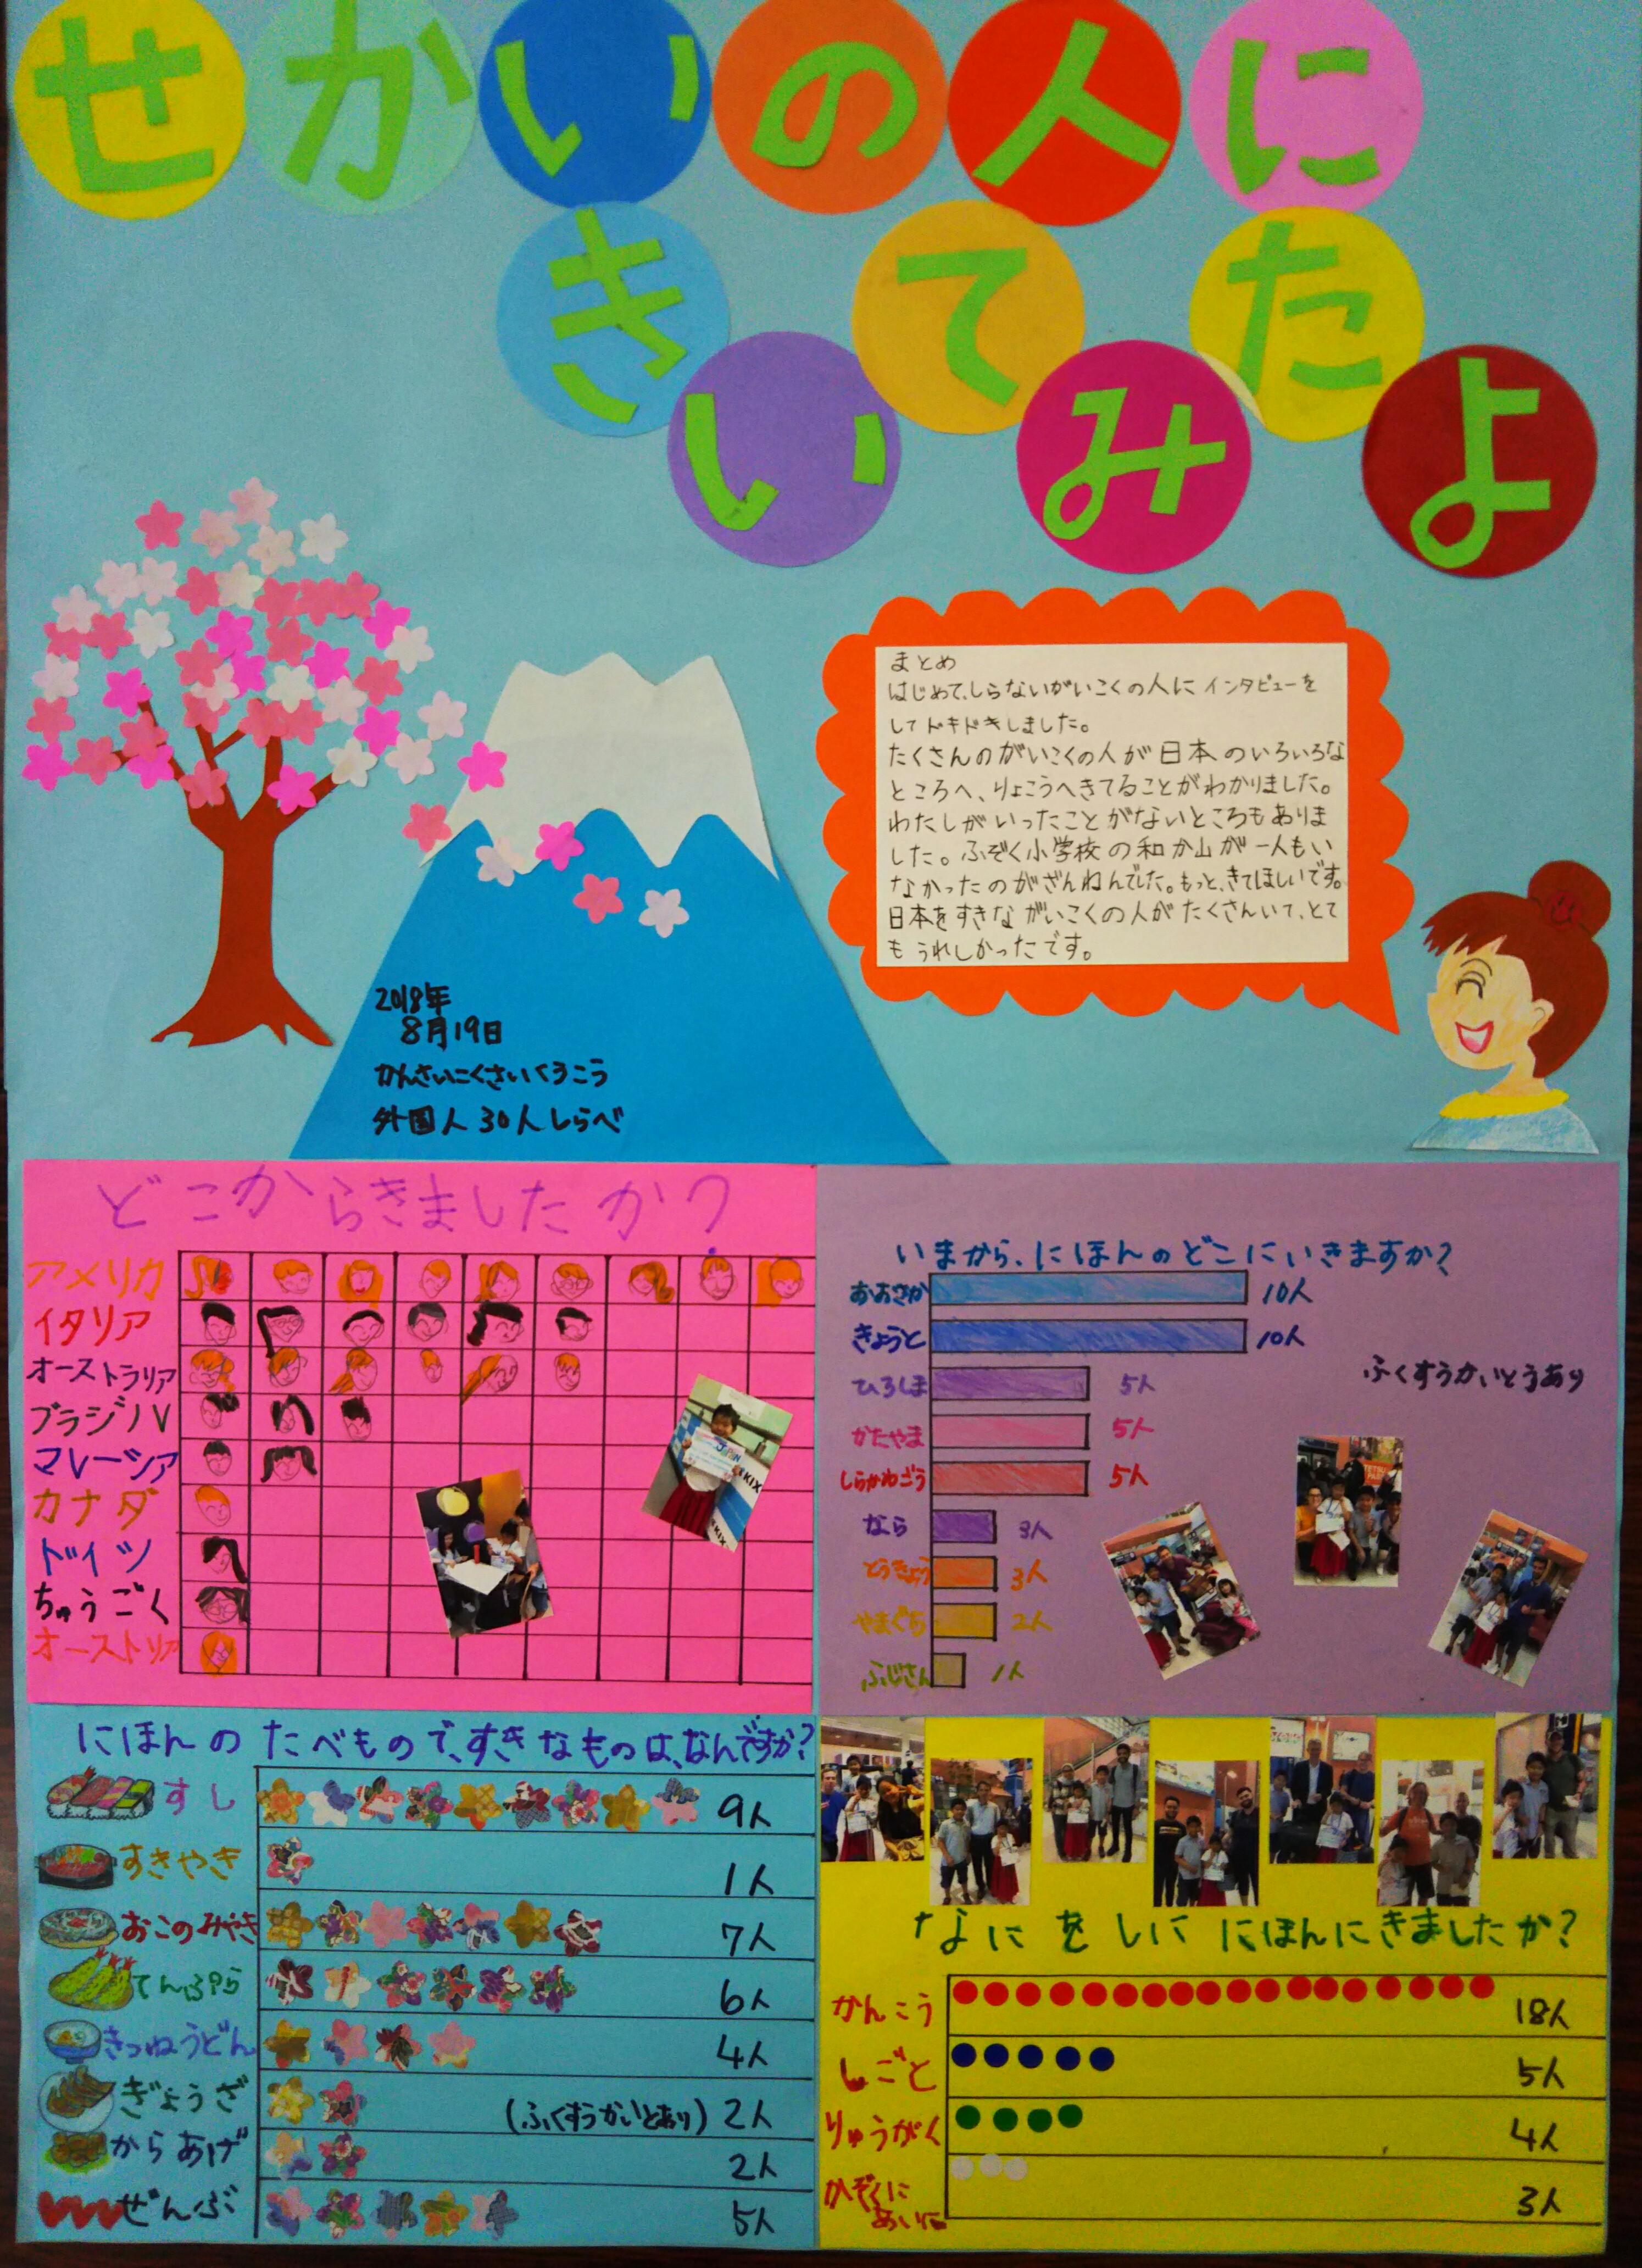 せかいの人に
きいてみたよ
まとめ
はじめて、しらないがいこくの人にインタビューを
してドキドキしました。
たくさんのがいこくの人が日本のいろいろな
ところへ、りょこうへきてることがわかりました。
わたしがいったことがないところもありま
した。ふぞく小学校の和か山が一人もい
なかったのがざんねんでした。もっと、きてほしいです。
日本をすきながいこくの人がたくさんいて、とて
もうれしかったです。
2018年
8月19日
かんさいこくさいくうこう
外国人30人しらべ
どこからきましたか?
アメリカ
イタリア
オーストラリア
ブラジル
マレーシア
カナダ
ドイツ
ちゅうごく
オーストリア
JAPAN
KIX
KIX
いまから、にほんのどこにいきますか?
おおさか 10人
きょうと 10人
ふくすうかいとうあり
ひろしま 5人
かたやま 5人
しらかわごう 5人
なら 3人
とうきょう 3人
やまぐち 2人
ふじさん 1人
にほんのたべもので、すきなものは、なんですか?
すし 9人
すきやき 1人
おこのみやき 7人
てんぷら 6人
きつねうどん 4人
ぎょうざ (ふくすうかいとあり) 2人
からあげ 2人
ぜんぶ 5人
なにをしににほんにきましたか?
かんこう 18人
しごと 5人
りゅうがく 4人
かぞくに
あいに 3人